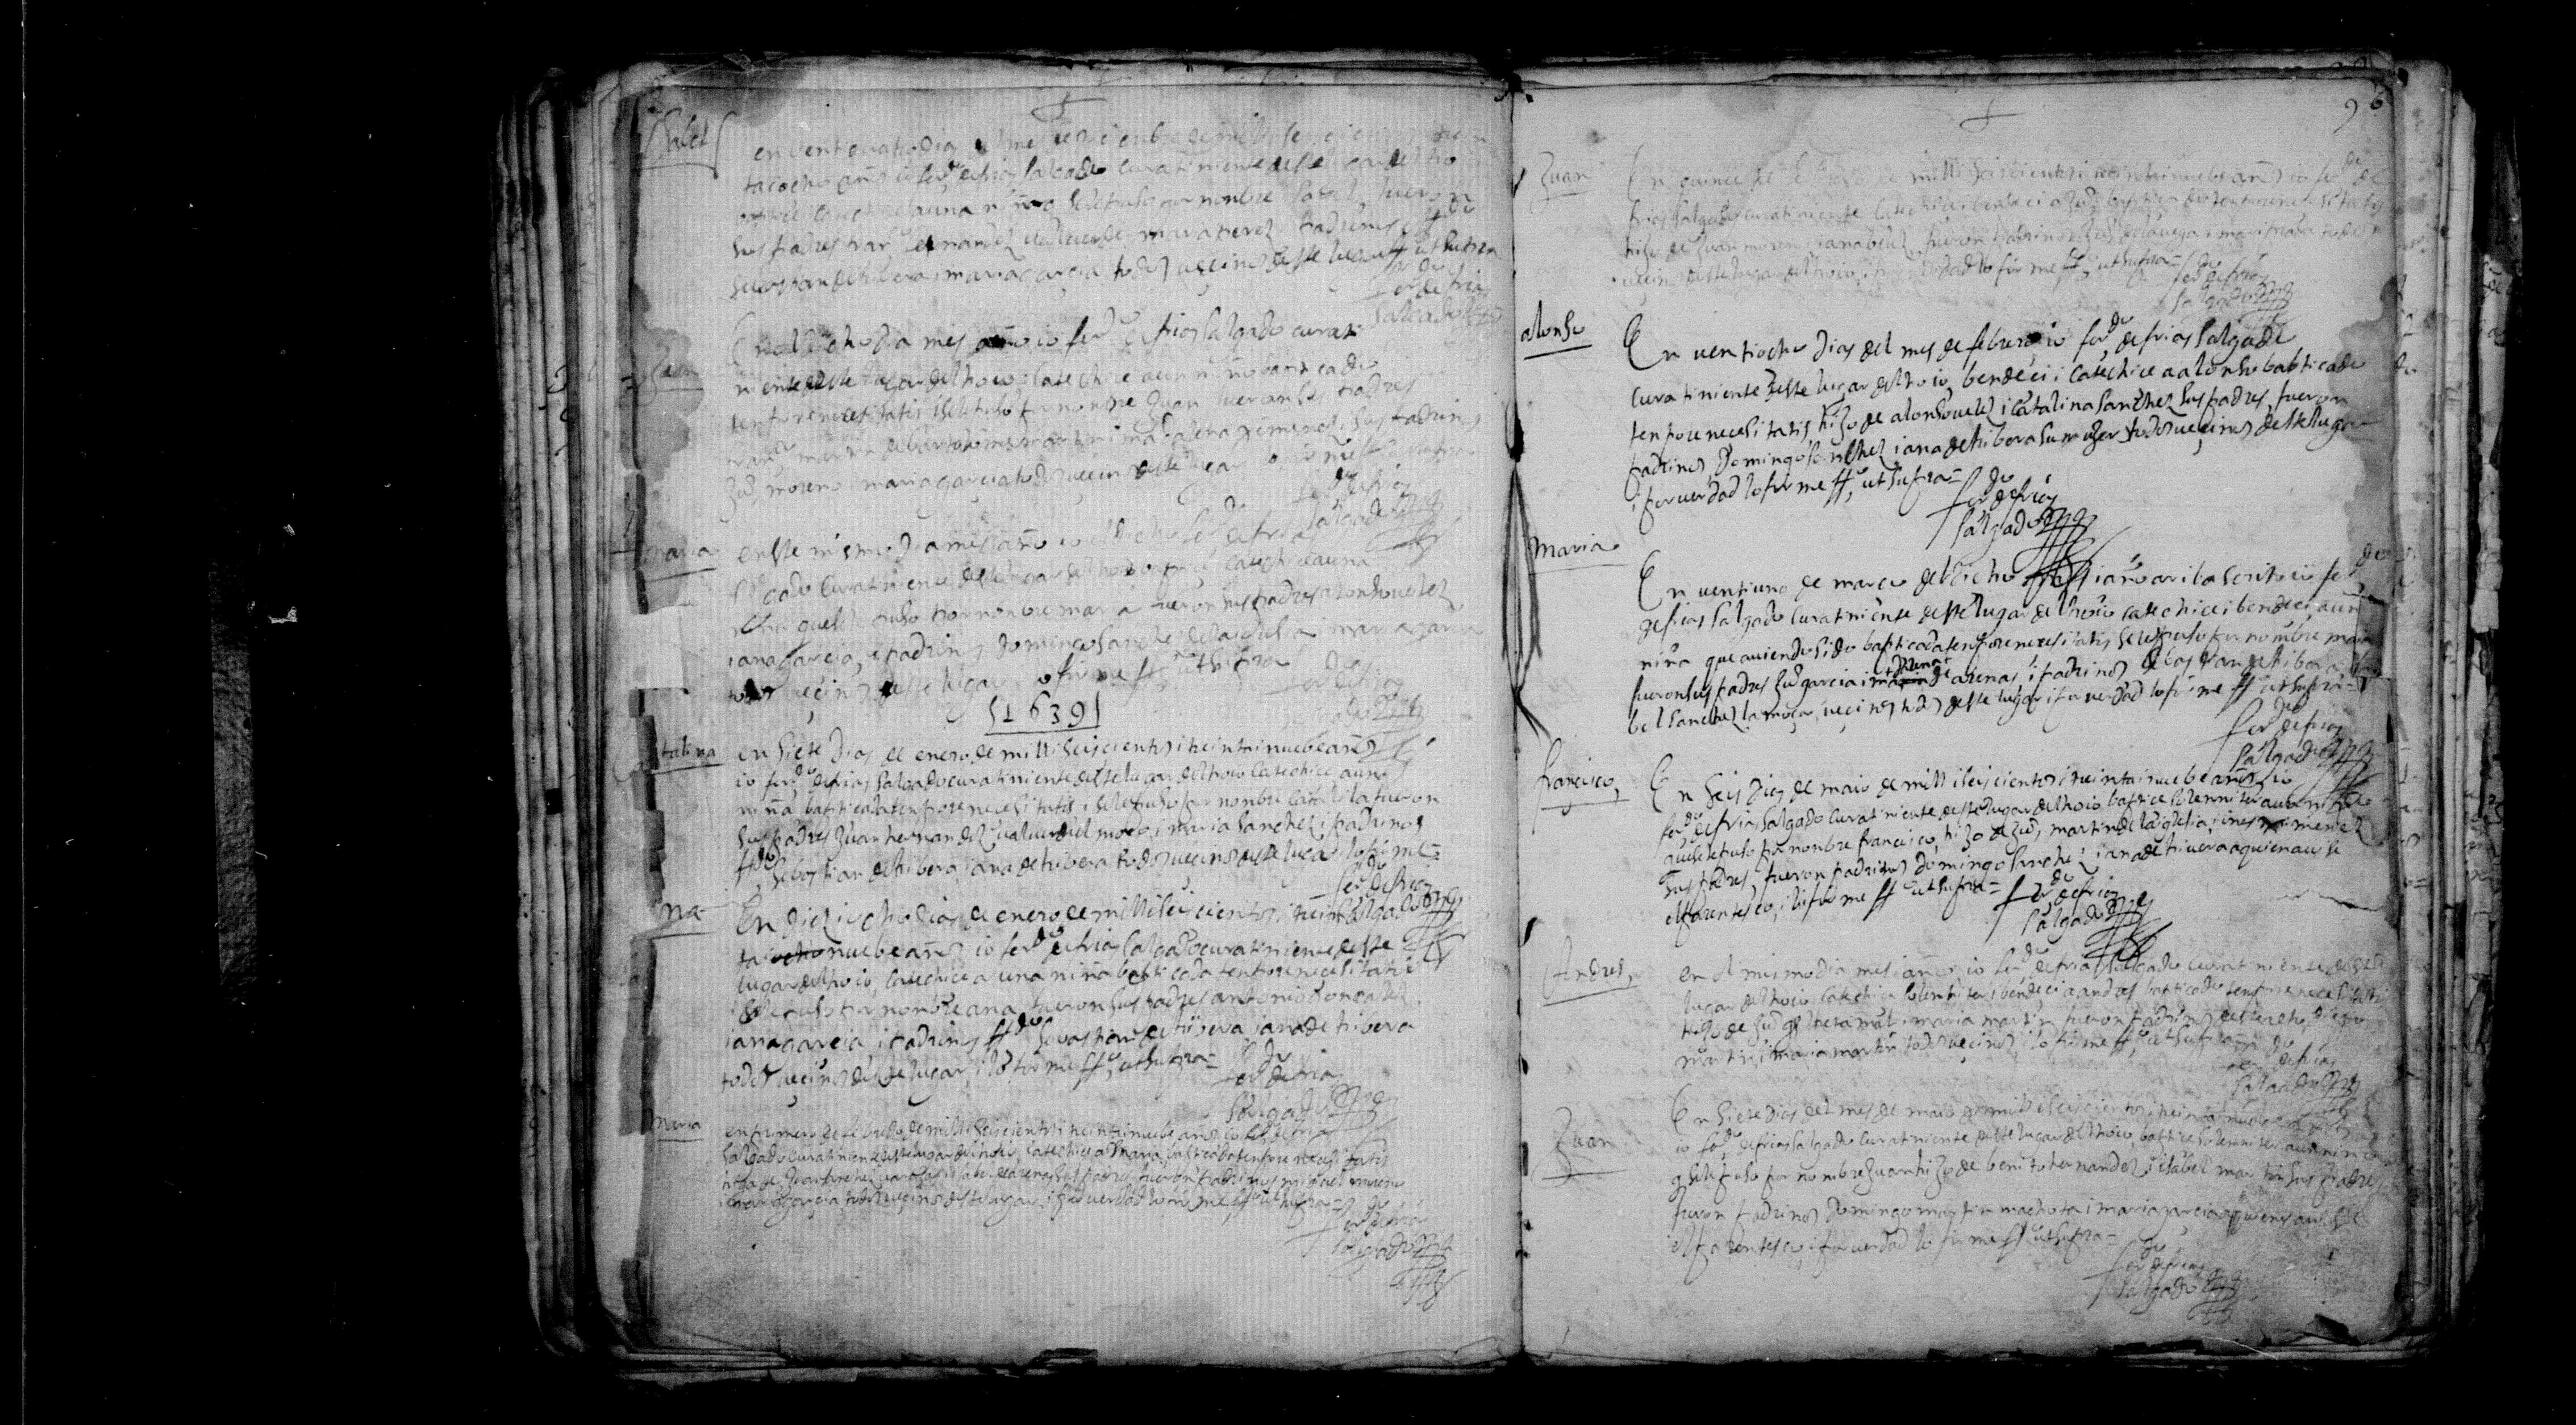 Isabel
en venti cuatro dias del mes de diciembre de mill i seiscientos i trein
ta i ocho años io fer.do de frias salgado curatiniente deste lugar del hoio
baptice i catechice a una niña i se le puso por nonbre isabel, fueron
sus padres fran.co hernandez i maria perez padrinos
sebastian de tribera i maria garcia todos vecinos deste lugar ff.o ut supra
fer.do de frias
salgado
Juan
En el dicho dia mes i año io fer.do de frias salgado curati
niente deste lugar del hoio catechice a un niño bapticado
tenpore necesitatis i se le puso por nonbre Juan fueron sus padres
fran.co martin de bartolome martin i madalena ximenez i sus padrinos
Ju.o moreno i maria garcia todos vecinos deste lugar lo firme ff.o ut supra
fer.do de frias
salgado
maria
en este mismo dia mes i año io el dicho fer.do de frias
salgado curatiniente deste lugar del hoio baptice i catechice a una
niña que se le puso por nonbre maria fueron sus padres alonso velez
i ana garcia, i padrinos domingo sanchez de la iglesia i maria garcia
todos vecinos deste lugar lo firme ff.o ut supra
fer.do de frias
salgado
1639
Catalina
en siete dias de enero de mill i seiscientos i treinta i nuebe años
io fer.do de frias salgado curatiniente deste lugar del hoio catechice a una
niña bapticada tenpore necesitatis i se le puso por nonbre catalina fueron
sus padres Juan hernandez valverde el moço i maria sanchez i padrinos
ff.do sebastian de tribera, i ana de tribera todos vecinos deste lugar i lo firme=
fer.do de frias
salgado
Ana
En diez i ocho dias de enero de mill i seiscientos i trein
ta i ocho nuebe años io fer.do de frias salgado curatiniente deste
lugar del hoio, catechice a una niña bapticada tenpore necesitatis
i se le puso por nonbre ana, fueron sus padres antonio gonzalez
i ana garcia i padrinos ff.do sevastian de tribera i ana de tribera
todos vecinos deste lugar, i lo firme ff.o ut supra=
fer.do de frias
salgado
Maria
en primero de febrero de mill i seiscientos i treinta i nuebe años io fer.do de frias
salgado curatiniente deste lugar del hoio, catechice a maria, bapticada tenpore necesitatis
hija de Juan sanchez i isabel de arenas sus padres fueron padrinos miguel moreno
i maria garcia todos vecinos deste lugar, i por verdad lo firme, ff.o ut supra=
fer.do de frias
salgado
96
Juan
En quince de febrero de mill i seiscientos i treinta i nuebe años io fer.do de
frias salgado curatiniente catechice i bendeci a Ju.o bapticado tenpore necesitatis
hijo de Juan moreno i ana belez fueron padrinos
vecinos deste lugar del hoio, i por verdad lo firme ff.o ut supra=
fer.do de frias
salgado
alonso
En ventiocho dias del mes de febrero, io fer.do de frias salgado
curatiniente deste lugar del hoio, bendeci i catechice a alonso bapticado
tenpore necesitatis hijo de alonso velez i catalina sanchez sus padres, fueron
padrinos Domingo sanchez i ana de tribera su mujer todos vecinos deste lugar
i por verdad lo firme ff.o ut supra=
fer.do de frias
salgado
Maria
En ventiuno de março del dicho mes i año arriba scrito io fer.do
de frias salgado curatiniente deste lugar del hoio catechice i bendeci a una
niña que aviendo sido bapticada tenpore necesitatis se le puso por nombre maria
fueron sus padres Ju.o garcia i maria de arenas i padrinos sebastian de tribera i isa
bel sanchez la moça, vecinos todos deste lugar i por verdad lo firme ff.o ut supra=
fer.do de frias
salgado
francisco,
En seis dias de maio de mill i seiscientos i treinta i nuebe años io
fer.do de frias salgado curatiniente deste lugar del hoio baptice solenniter a un niño
que se le puso por nonbre francisco, hijo de Ju.o martin de la iglesia, i ines ximenez
sus padres, fueron padrinos Domingo sanchez i ana de trivera a quien avise
el parentesco, i lo firme ff.o ut supra=
fer.do de frias
salgado
Andres,
en el mismo dia mes i año, io fer.do de frias salgado curatiniente deste
lugar del hoio catechice solenniter i bendeci a andres bapticado tenpore necesitatis
hijo de Ju.o i maria martin fueron padrinos
martin, i maria martin todos vecinos, i lo firme ff.o ut supra=
fer.do de frias
salgado
Juan
En siete dias del mes de maio de mill i seiscientos i treinta i nuebe años
io fer.do de frias salgado curatiniente deste lugar del hoio, baptice solenniter a un niño
q se le puso por nombre Juan hijo de benito hernandez i isabel martin sus padres
fueron padrinos Domingo martin machota i maria garcia a quienes avise
el parentesco, i por verdad lo firme ff.o ut supra=
fer.do de frias
salgado